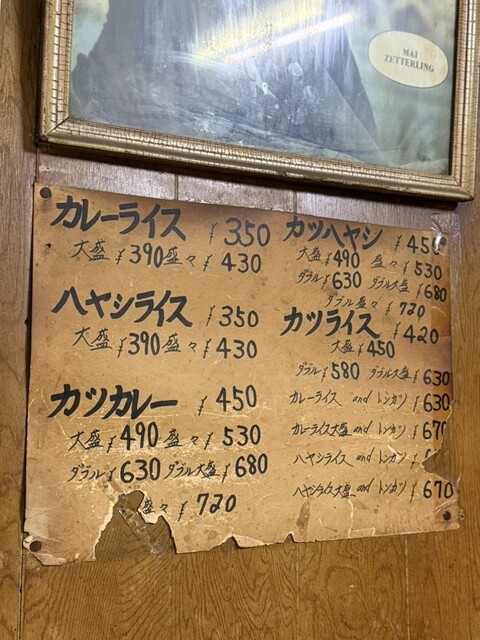 MAI
ZETTERLING
カレーライス ¥350
大盛 ¥390 盛々 ¥430
ハヤシライス ¥350
大盛 ¥390 盛々 ¥430
カツカレー ¥450
大盛 ¥490 盛々 ¥530
ダブル ¥630 ダブル大盛 ¥680
盛々 ¥720
カツハヤシ ¥450
大盛 ¥490 盛々 ¥530
ダブル ¥630 ダブル大盛 ¥680
ダブル盛々 ¥720
カツライス ¥420
大盛 ¥450
ダブル ¥580 ダブル大盛 ¥630
カレーライス and トンカツ ¥630
カレーライス大盛 and トンカツ ¥670
ハヤシライス and トンカツ
ハヤシライス大盛 and トンカツ ¥670